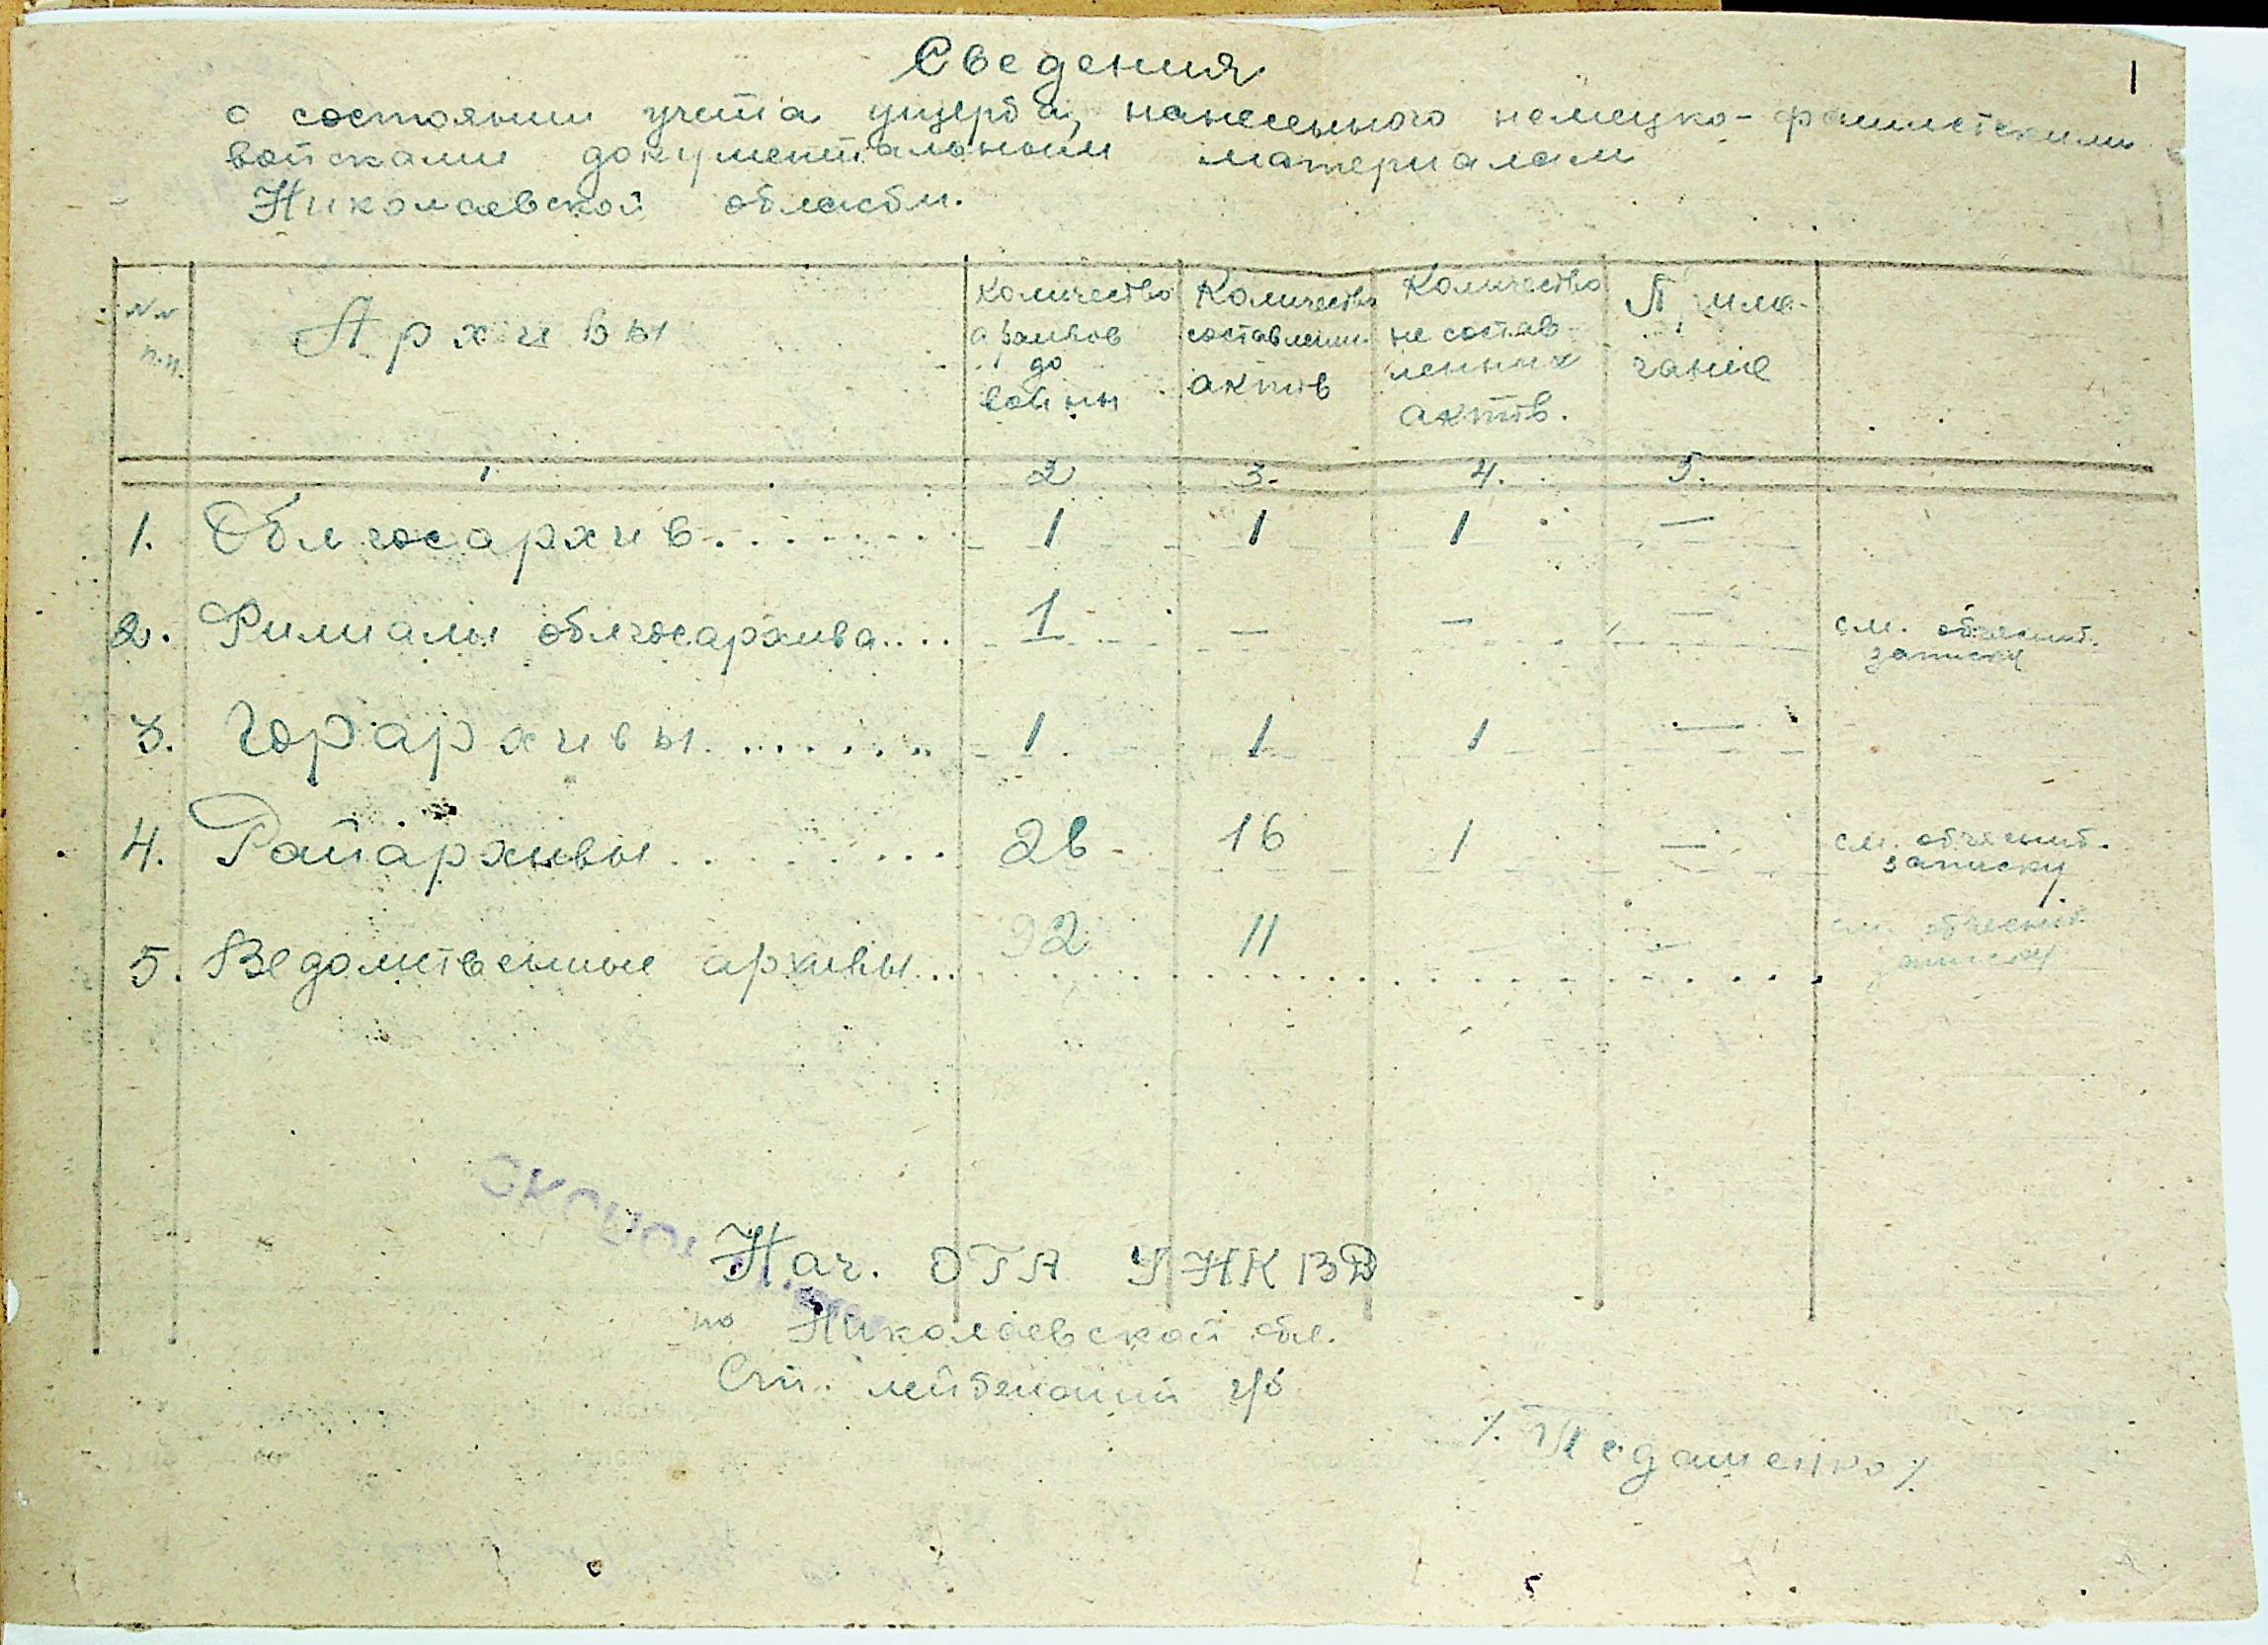 1
Сведения
о состоянии учета ущерба, нанесенного немецко-фашистскими
войсками документальным материалам
Николаевской области.
№№ п.п. | Архивы | Количество архивов до войны | Количество составлен. актов | Количество не составленных актов. | Примечание
1 | 2 | 3. | 4. | 5.
1. Облгосархив........ 1 | 1 | 1 | —
2. Филиалы облгосархива.... 1 | — | — | — | см. объяснит. записку
3. Горархивы........ 1 | 1 | 1 | —
4. Райархивы......... 28 | 16 | 1 | — | см. объяснит. записку
5. Ведомственные архивы... 92 | 11 | — | — | см. объяснит. записку
Нач. ОГА УНКВД
по Николаевской обл.
Ст. лейтенант г/б